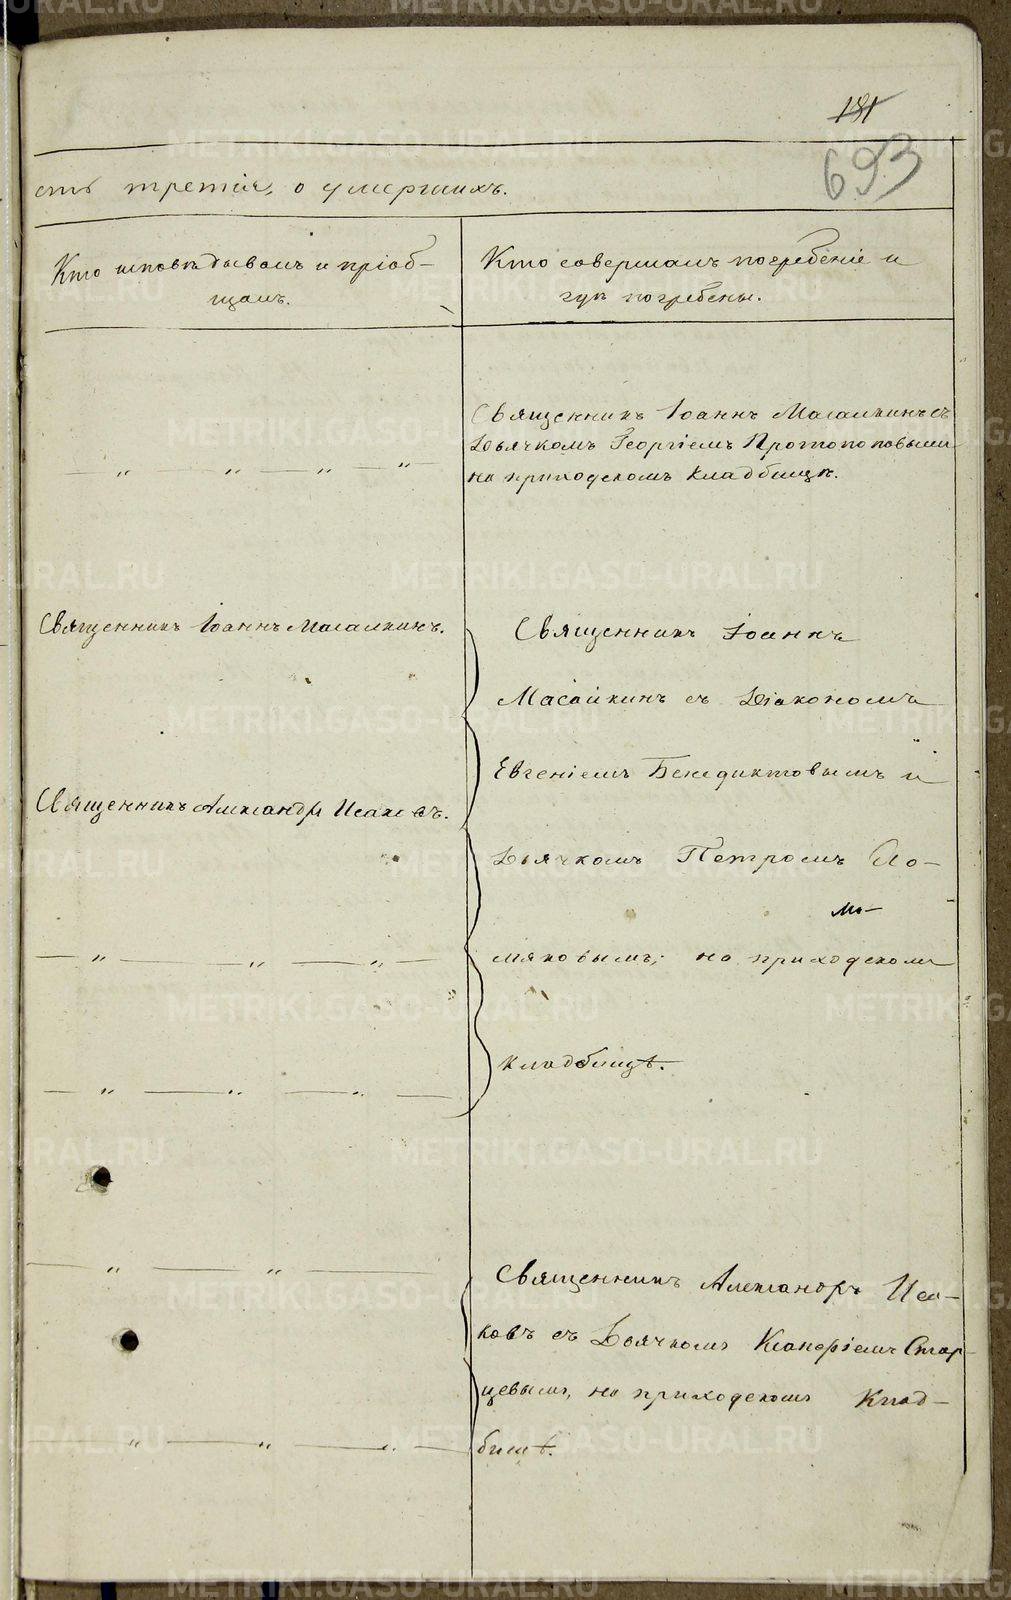 181
693
сть третія, о умершихъ.
Кто исповѣдывалъ и пріоб-
щалъ.
Кто совершалъ погребеніе и
гдѣ погребены.
Священникъ Іоаннъ Масалкинъ съ
Дьячкомъ Георгіемъ Протопоповымъ
на приходскомъ кладбищѣ.
— „ — „ — „ — „ —
Священникъ Іоаннъ Масалкинъ.
Священникъ Александръ Исаковъ.
— „ — „ — „ —
— „ — „ — „ —
Священникъ Іоаннъ
Масайкинъ съ Діакономъ
Евгеніемъ Бенедиктовымъ и
Дьячкомъ Петромъ
мо-
мяковымъ; на приходскомъ
кладбищѣ.
— „ — „ —
— „ — „ — „ —
Священникъ Александръ Иса-
ковъ съ Дьячкомъ Стар-
цевымъ, на приходскомъ Клад-
бищѣ.
METRIKI.GASO-URAL.RU